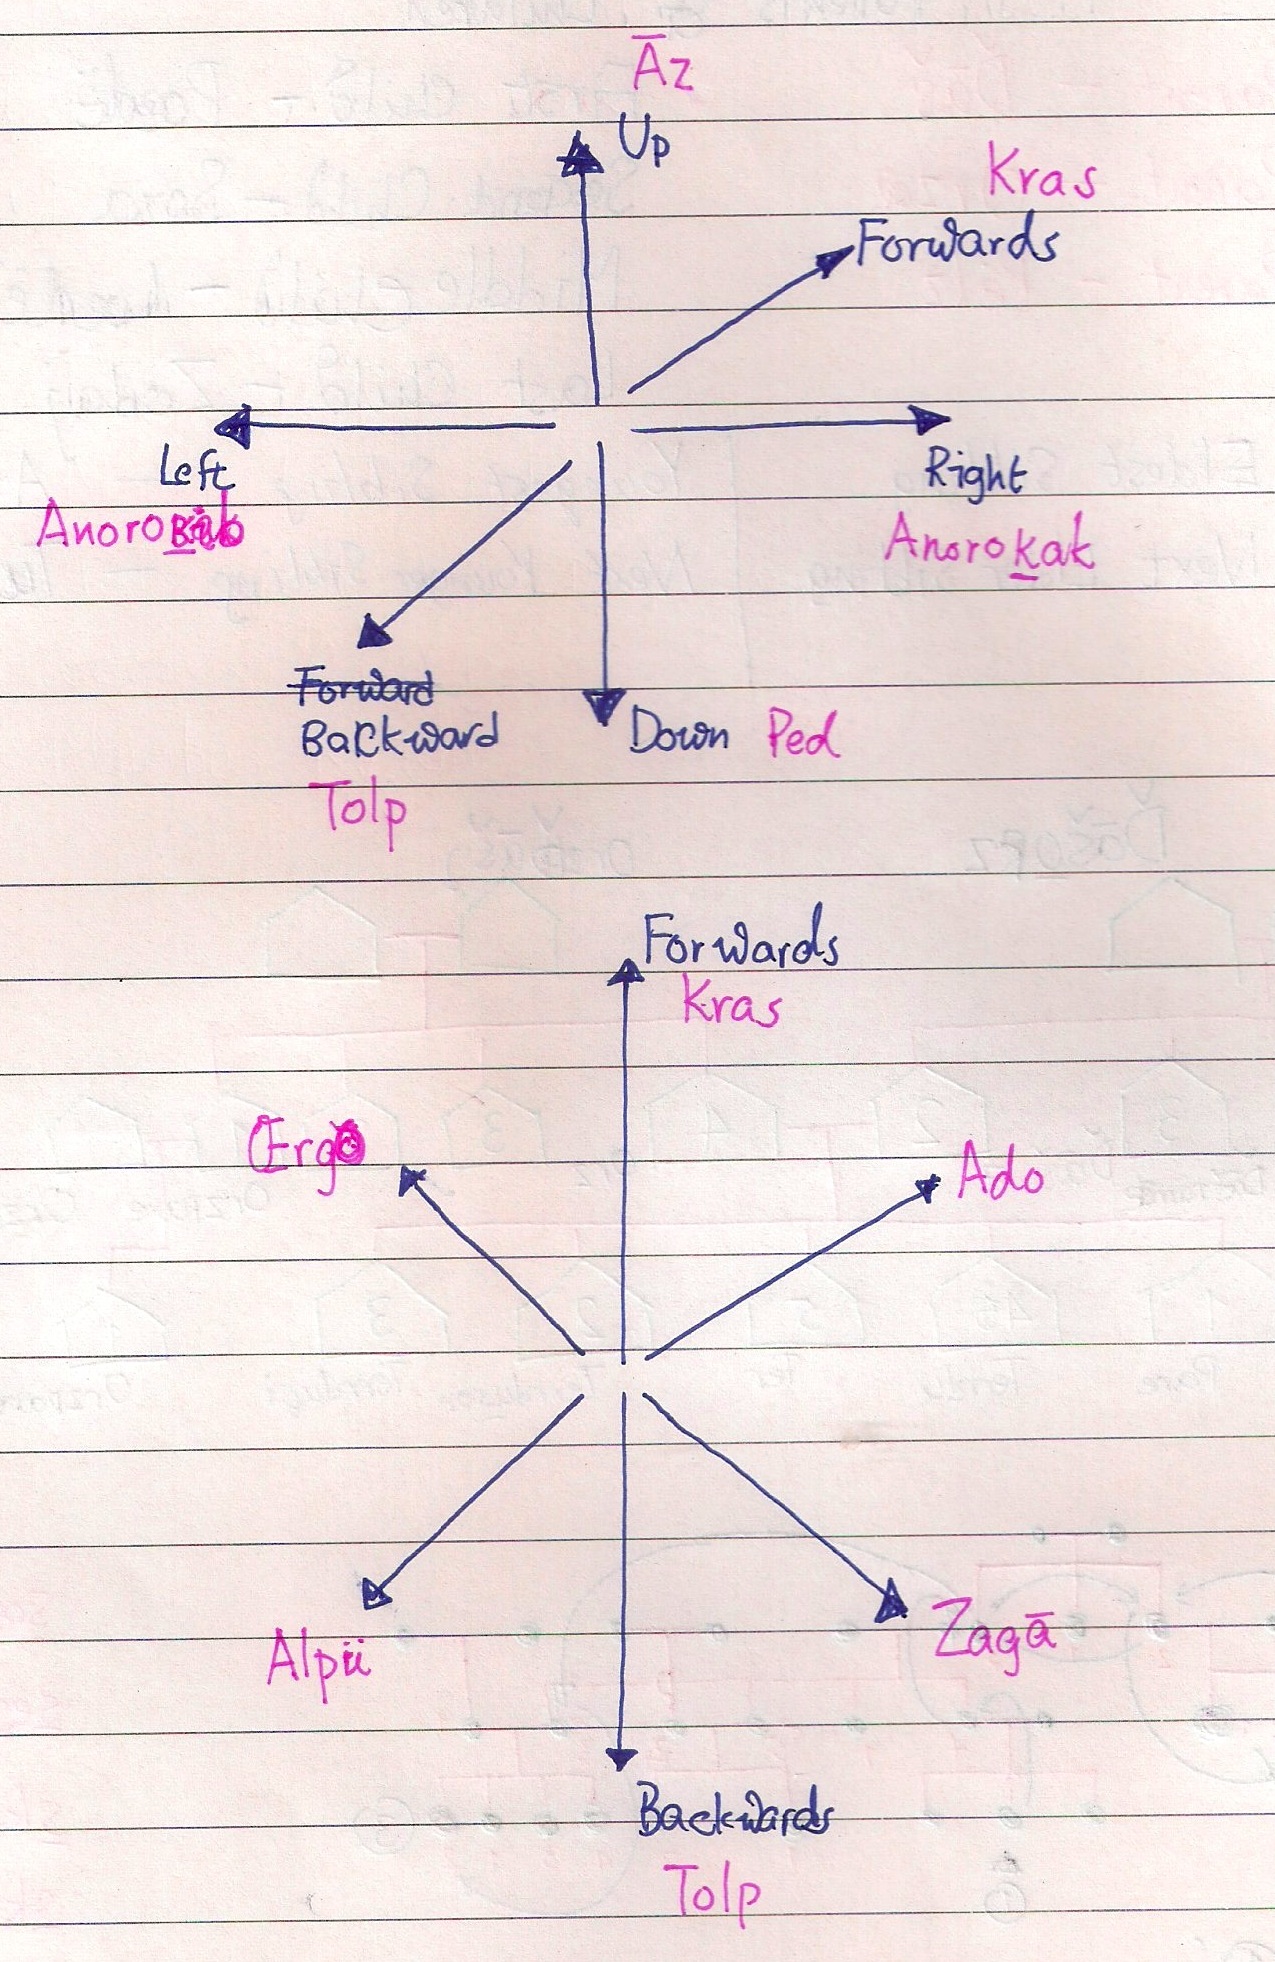 Āz
Up
Kras
Forwards
Left
Right
Anorokak
Forward
Backward
Down Ped
Tolp
Forwards
Kras
Ado
Alpü
Zagā
Backwards
Tolp